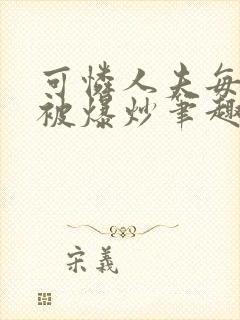 可憐人夫每
被爆炒筆趣
宋義